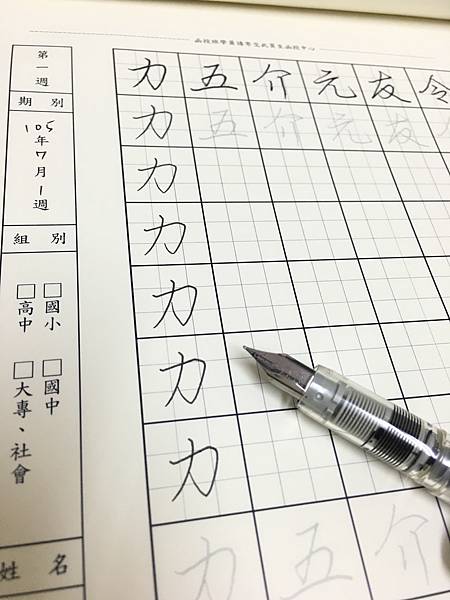 第一週
期別
105年7月1週
組別
□國小 □國中
□高中 □大專、社會
姓名
力五介元友令
力五介元友
力
力
力
力
力
力五介